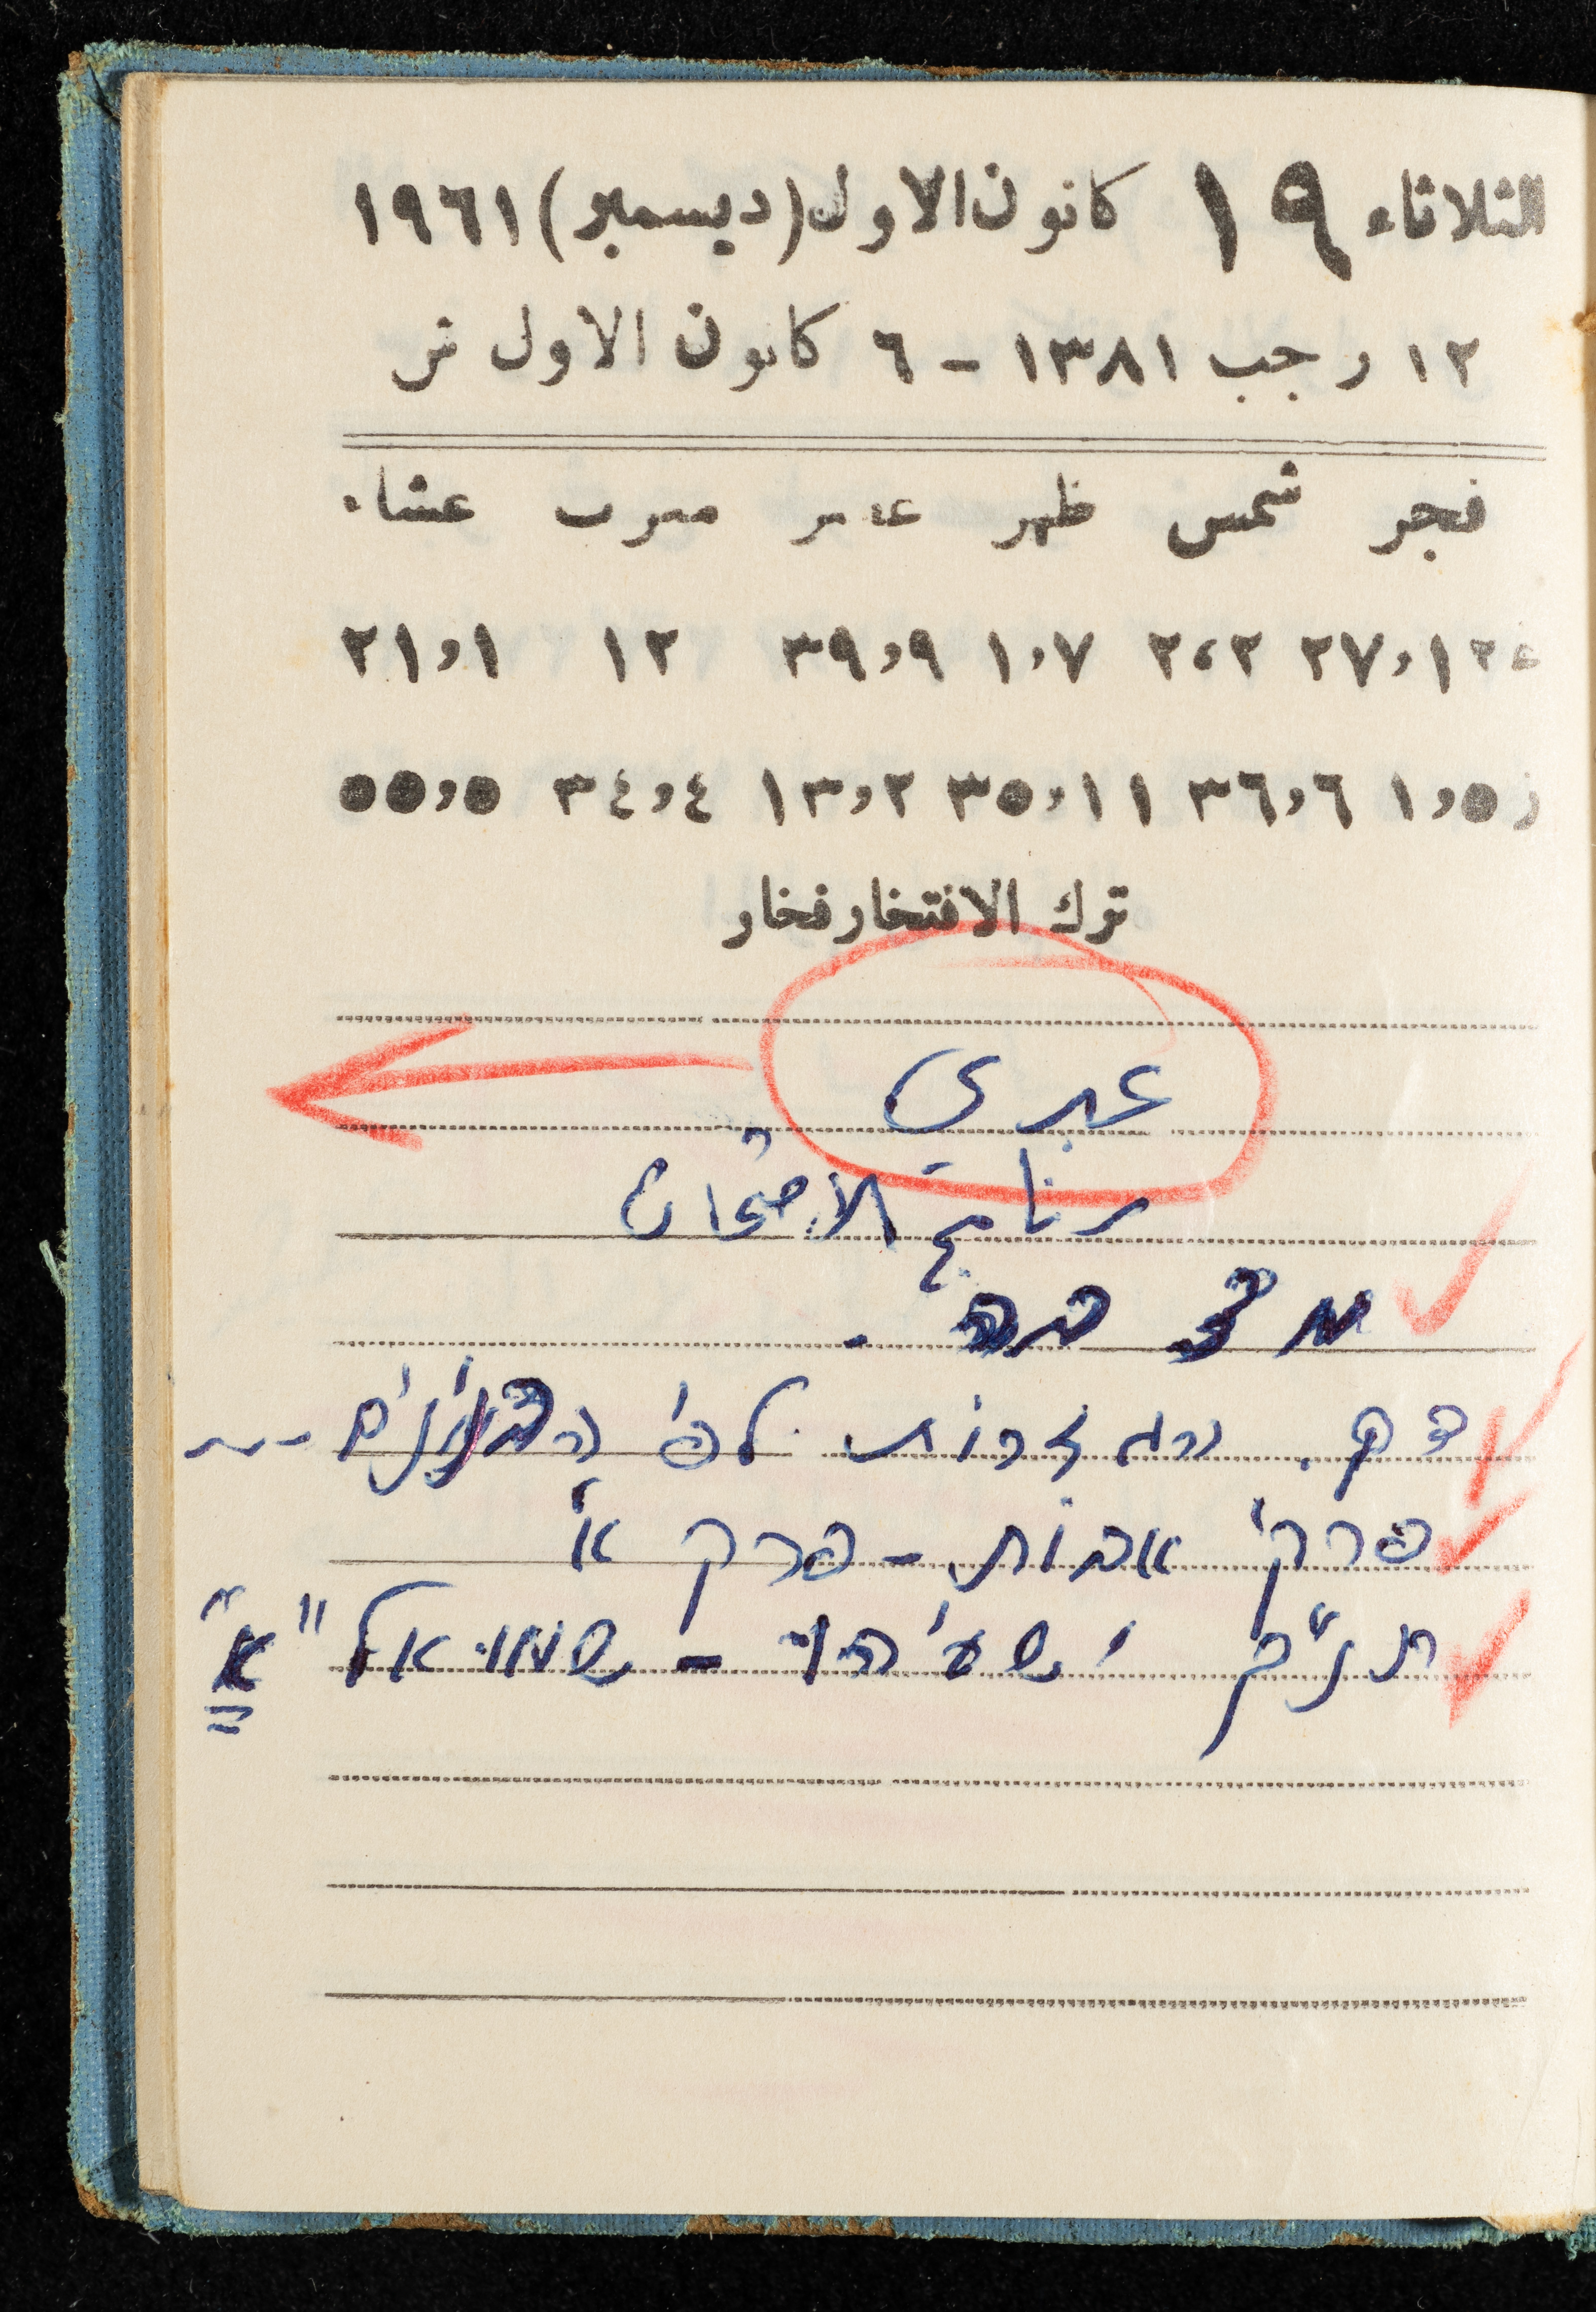 الثلاثاء ١٩ كانون الاول (ديسمبر) ١٩٦١
١٢ رجب ١٣٨١ - ٦ كانون الاول ش
فجر شمس ظهر عصر مغرب عشاء
٢٧،١٢ ٢،٢ ١،٧ ٣٩،٩ ١٢ ٢١،١
ز ١،٥ ٣٦،٦ ٣٥،١١ ١٣،٢ ٣٤،٤ ٥٥،٥
ترك الافتخار فخار
عبري
برنامج الامتحان
דק. לפי הבנינים
פרקי אבות - פרק א'
תנ"ך ישעיהו - שמואל "א"